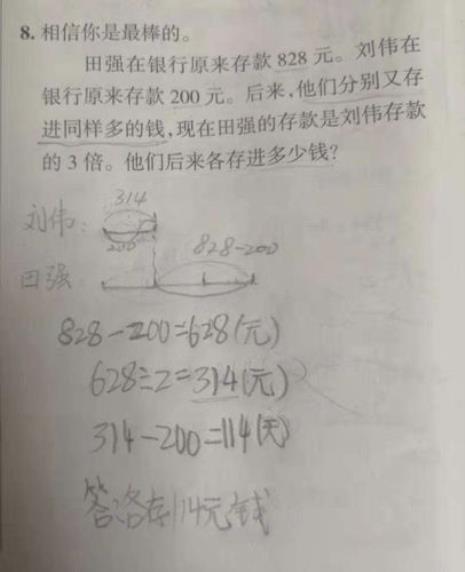 8. 相信你是最棒的。
田强在银行原来存款 828 元。刘伟在
银行原来存款 200 元。后来,他们分别又存
进同样多的钱,现在田强的存款是刘伟存款
的 3 倍。他们后来各存进多少钱?
314
刘伟:
200
828-200
田强
828-200=628(元)
628÷2=314(元)
314-200=114(元)
答:各存114元钱